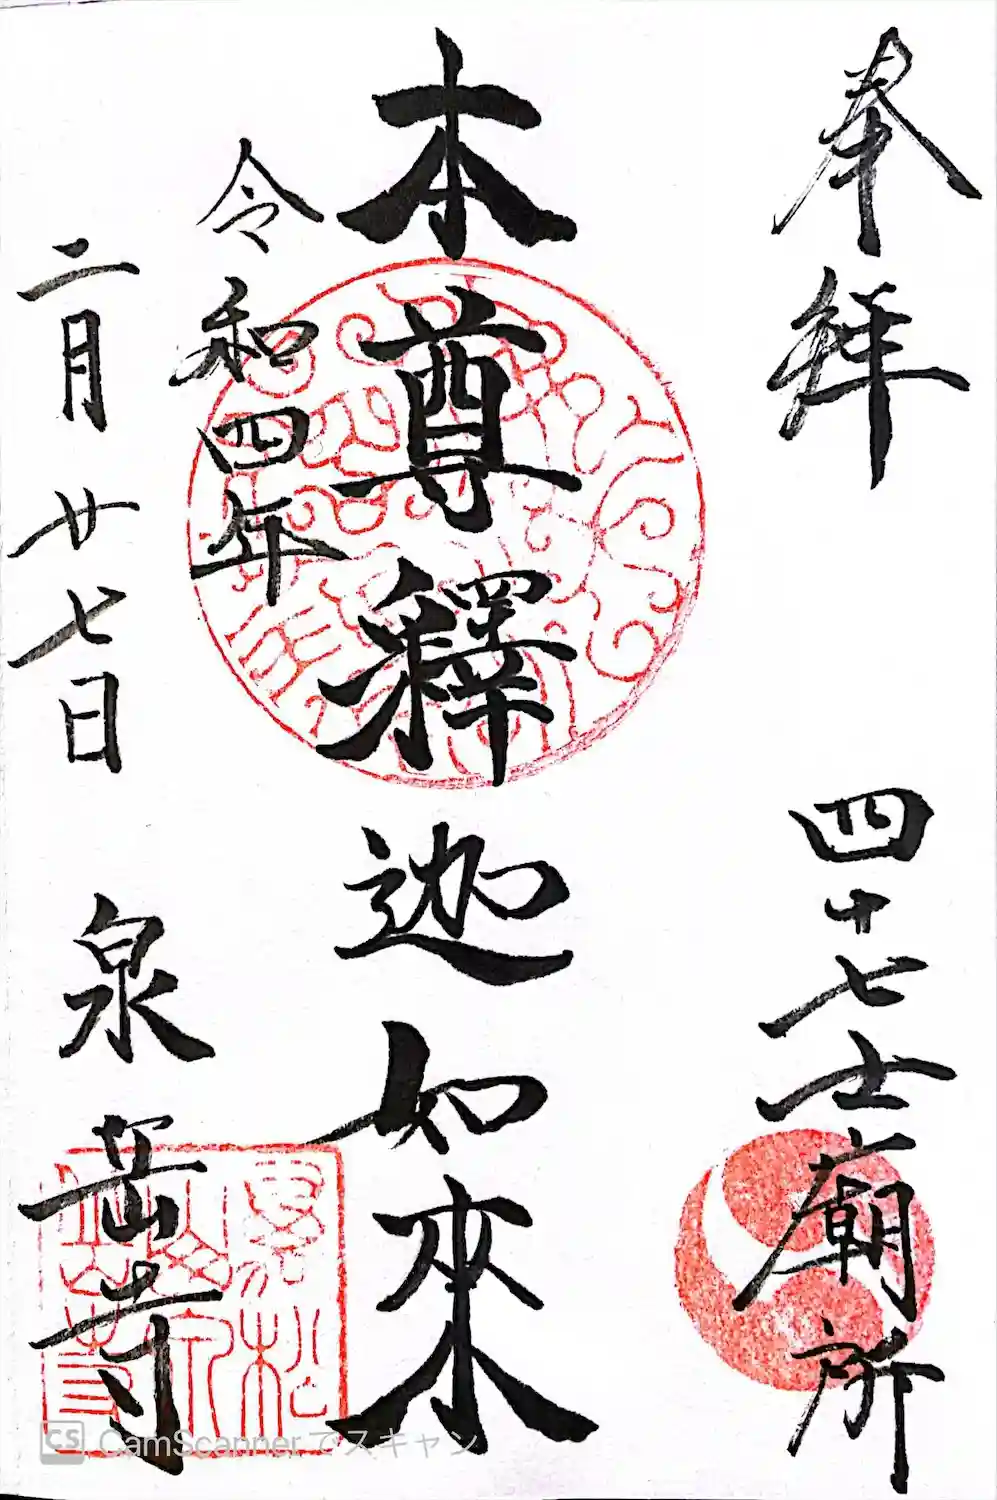 奉拝
四十七士廟所
本尊釋迦如來
令和四年
二月廿七日
泉岳寺
CS CamScannerでスキャン